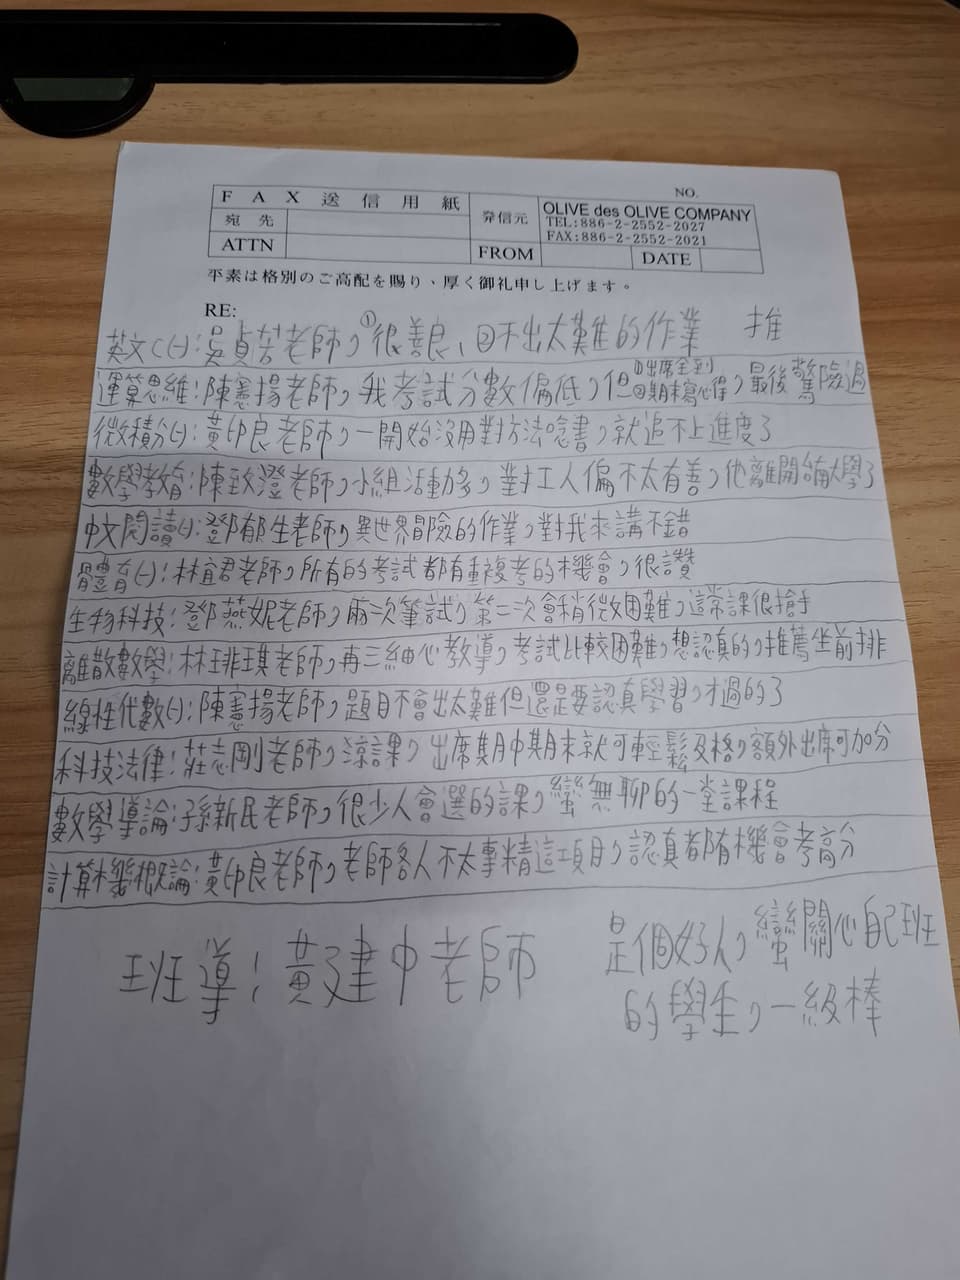 NO.
FAX送信用紙
発信元
OLIVE des OLIVE COMPANY
TEL:886-2-2552-2027
FAX:886-2-2552-2021
宛先
ATTN
FROM
DATE
平素は格別のご高配を賜り、厚く御礼申し上げます。
RE:
英文(一):吳貞芳老師,①很善良、②不出太難的作業 推
運算思維:陳憲揚老師,我考試分數偏低,但①出席全到②期末寫心得,最後驚險過
微積分(一):黃仲良老師,一開始沒用對方法唸書,就追不上進度了
數學教育:陳致澄老師,小組活動多,對工人偏不太有善,他離開台南大學了
中文閱讀(一):鄧郁生老師,異世界冒險的作業,對我來講不錯
體育(一):林宜君老師,所有的考試都有重複考的機會,很讚
生物科技:鄧燕妮老師,兩次筆試,第二次會稍微困難,這常課很搶手
離散數學:林琲琪老師,再三細心教導,考試比較困難,想認真的,推薦坐前排
線性代數(一):陳憲揚老師,題目不會出太難但還是要認真學習,才過的了
科技法律:莊志剛老師,涼課,出席期中期末就可輕鬆及格,額外出席可加分
數學導論:孫新民老師,很少人會選的課,蠻無聊的一堂課程
計算機概論:黃仲良老師,老師各人不太專精這項目,認真都有機會考高分
班導:黃建中老師 是個好人,蠻關心自己班
的學生,一級棒